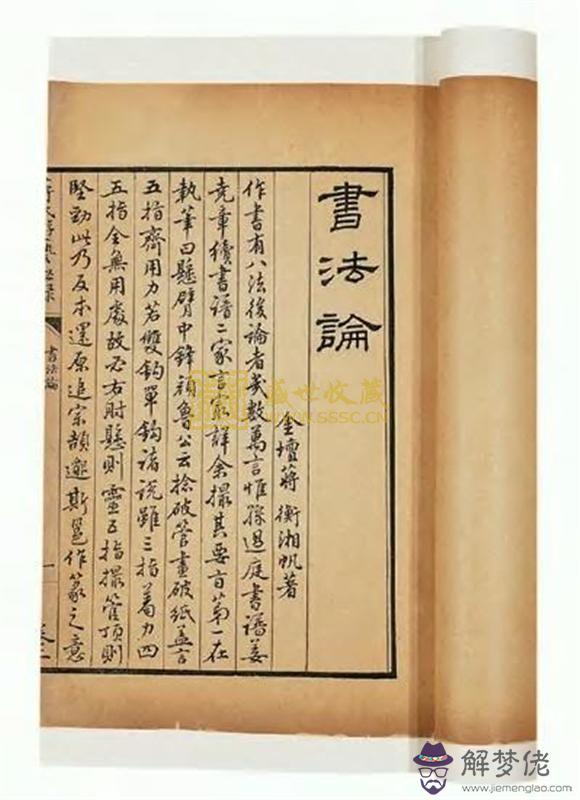 書法論
金壇蔣衡湘帆著
作書有八法後論者幾數萬言惟孫過庭書譜姜
堯章續書譜二家言最詳余撮其要旨第一在
執筆曰懸臂中鋒顏魯公云捻破管畫破紙蓋言
五指齊用力若雙鈎單鈎諸説雖三指着力四
五指全無用處故必右肘懸則靈五指撮管頂則
堅勁此乃反本還原追宗頡邈斯邕作篆之意
書法論
一
卷二
盛世收藏
WWW.SSSC.CN
解梦佬
www.jiemenglao.com